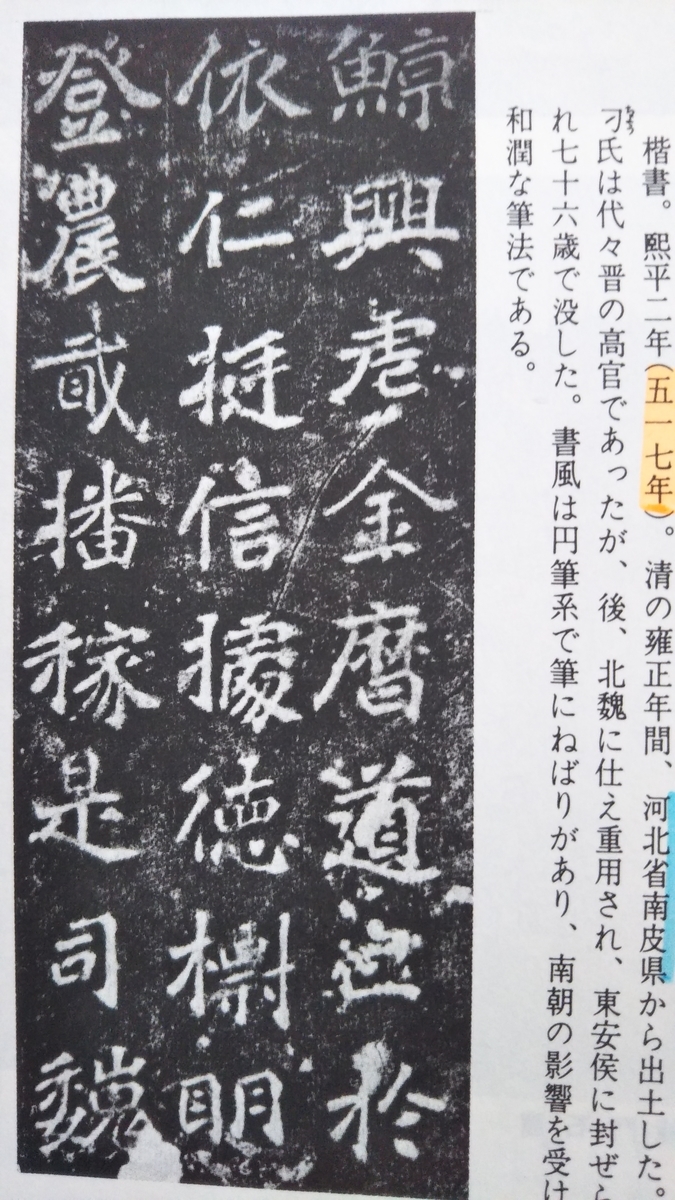 楷書。熙平二年(五一七年)。清の雍正年間、河北省南皮県から出土した。
刁氏は代々晋の高官であったが、後、北魏に仕え重用され、東安侯に封ぜら
れ七十六歳で没した。書風は円筆系で筆にねばりがあり、南朝の影響を受け
和潤な筆法である。
鯨興虐金暦道於
依仁挺信據徳樹明
登農哉播稼是司魏